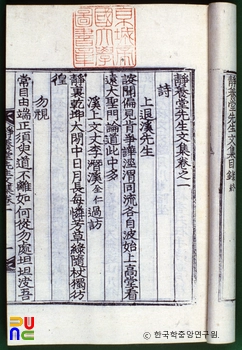 靜養堂先生文集目錄 終
靜養堂先生文集卷之一
詩
上退溪先生
談開偏見肯爭譁涇渭同流各自波始上高堂看
遠大聖門論道此中多
溪上文士李潛溪 全仁 過訪
靜裏乾坤大閒中日月長每憐芳草綠隨杖獨彷
徨
勿視
常目由端正須臾道不離如何從勿處坦坦沒吾
京城帝國大學圖書章
© 한국학중앙연구원